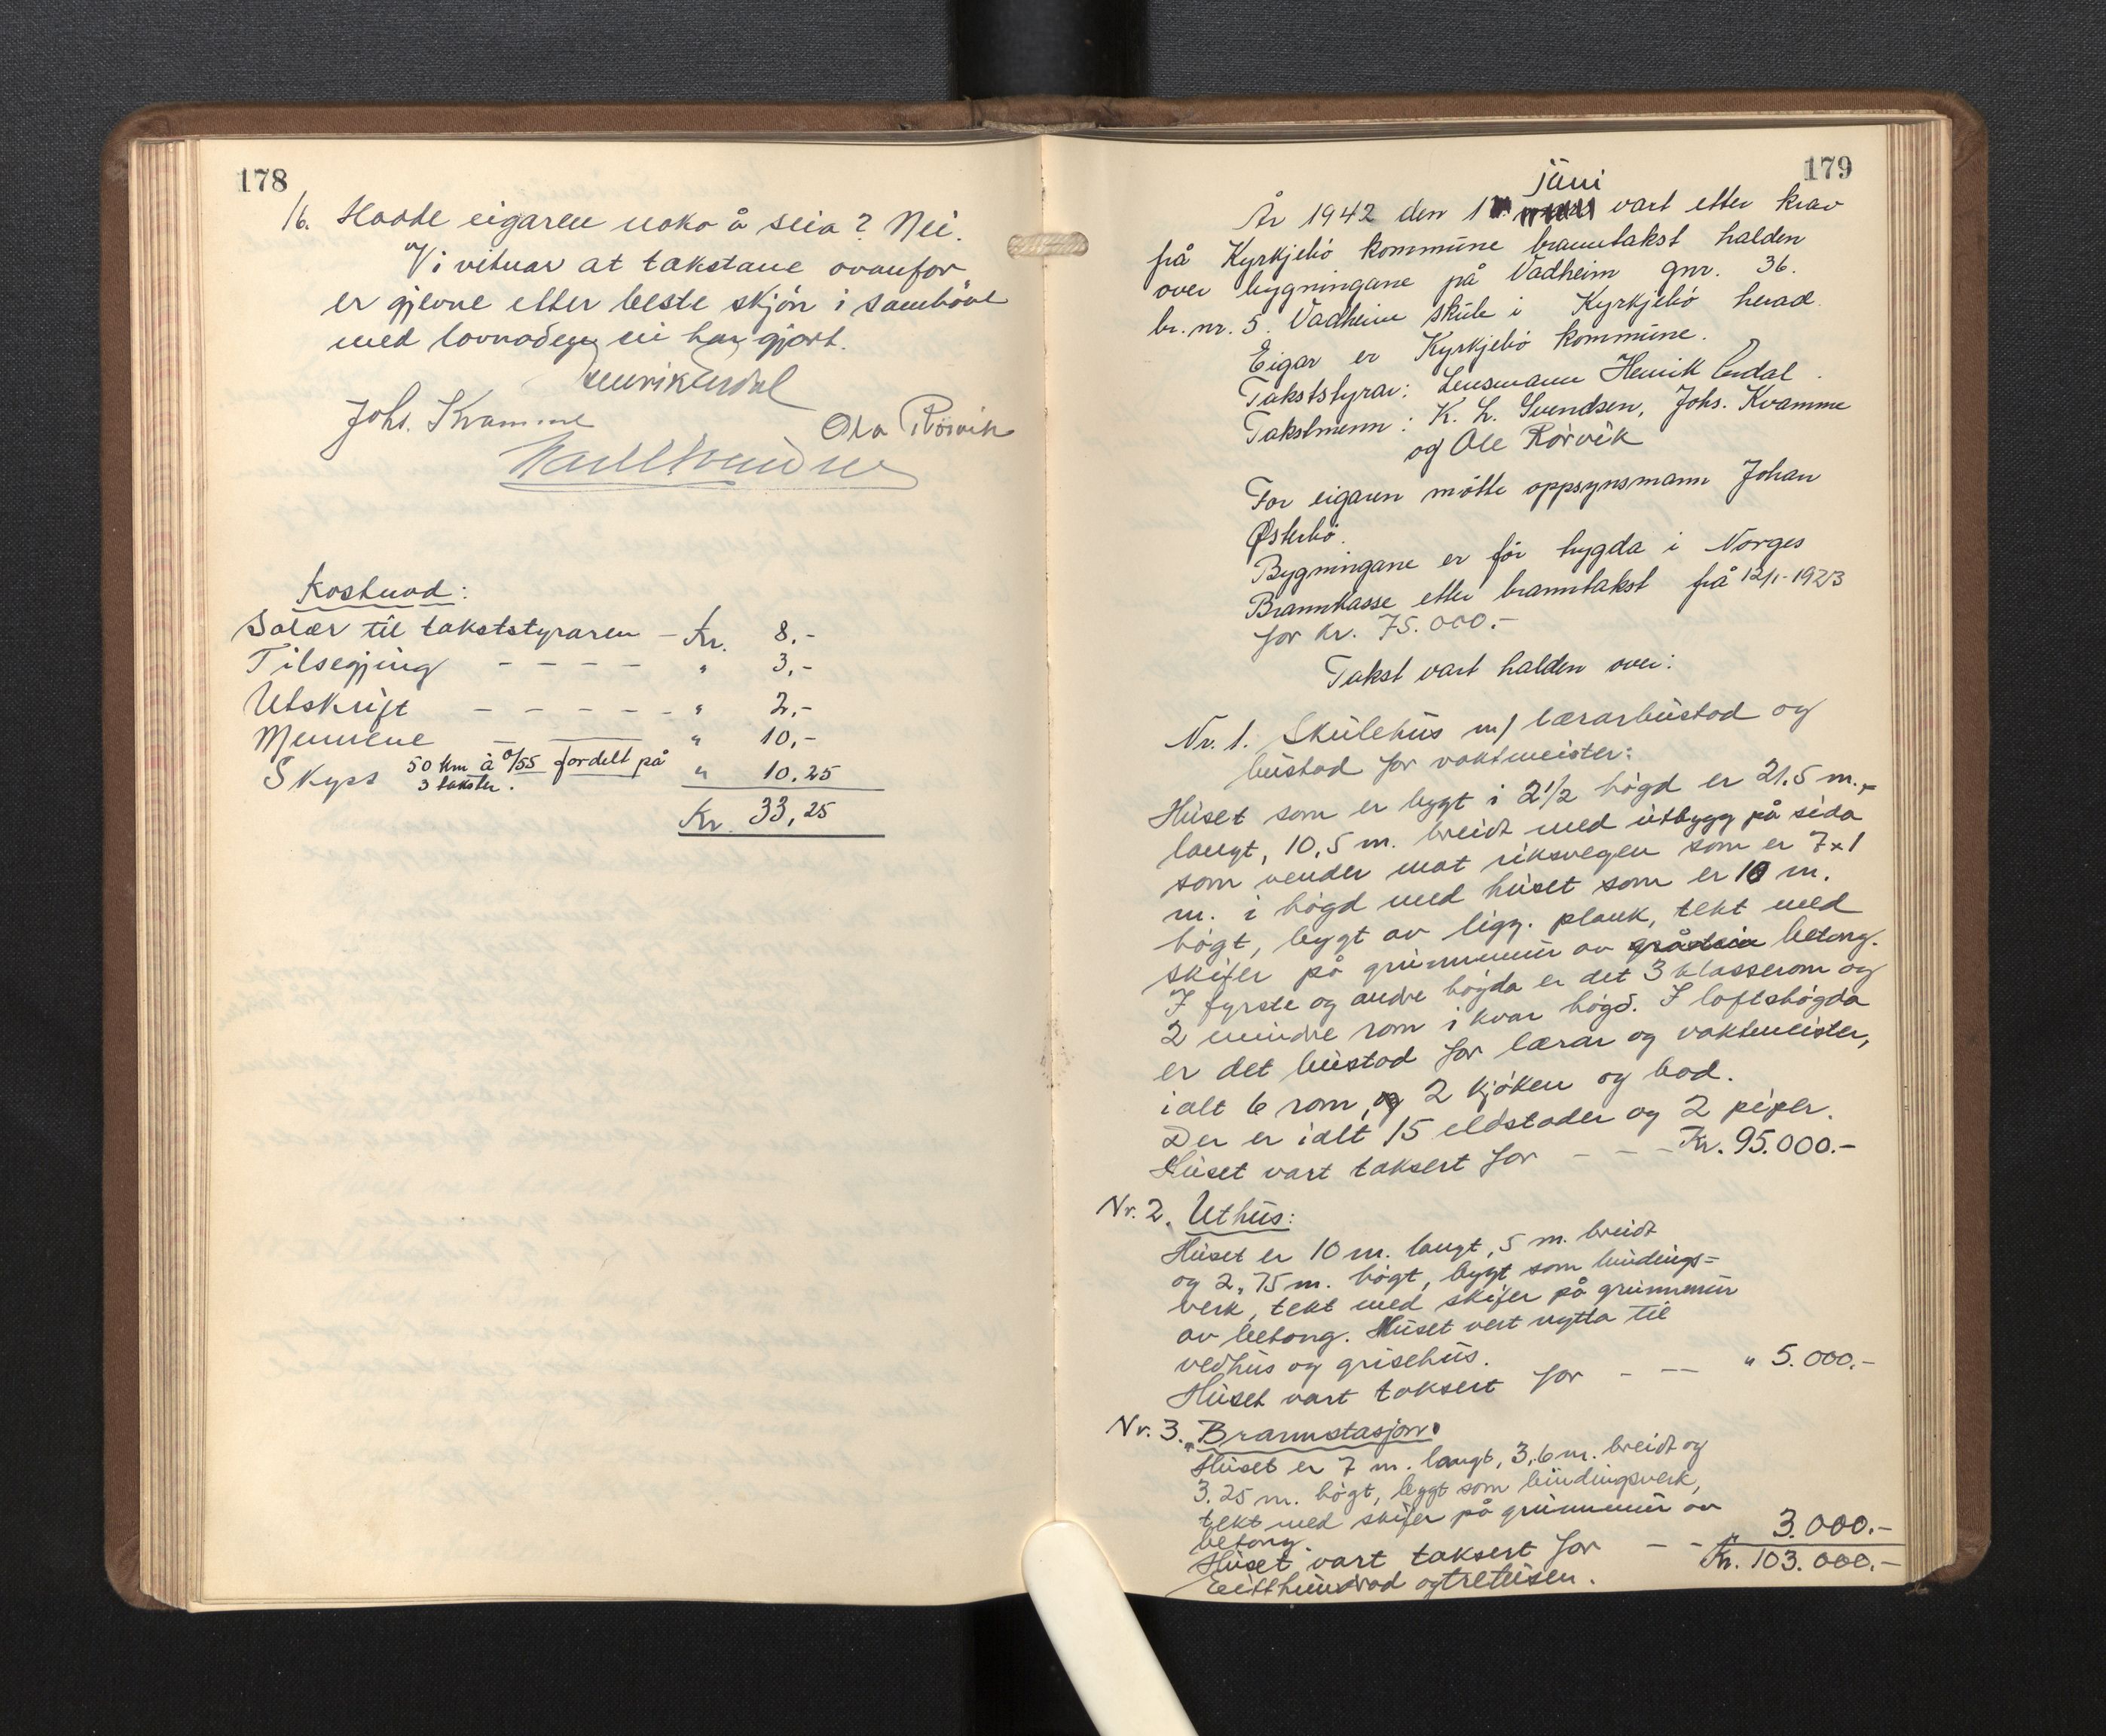 178
16. Hadde eigaren noko å seia? Nei.
Vi vitnar at takstane ovanfor
er gjevne etter beste skjön i samhöve
med lovnaden vi har gjort.
Henrik Endal
Johs. Kvamme
Ola Rörvik
Kostnad:
Salær til takststyraren – Kr. 8,-
Tilsegjing – – – – " 3,-
Utskrift – – – – – " 2,-
Mennene – " 10,-
Skyss 50 km à 0/55 fordelt på " 10,25
3 takster.
Kr. 33,25
179
juni
År 1942 den 1 vart etter krav
frå Kyrkjebö kommune branntakst halden
over bygningane på Vadheim gnr. 36.
br. nr. 5. Vadheim skule i Kyrkjebö herad.
Eigar er Kyrkjebö kommune.
Takststyrar: Lensmann Henrik Endal.
Takstmenn: K. L. Svendsen, Johs. Kvamme
og Ole Rörvik
For eigaren mötte oppsynsmann Johan
Østerbö.
Bygningane er för trygda i Norges
Brannkasse etter branntakst frå 12/1-1923
for kr. 75.000.-
Takst vart halden over:
Nr. 1. Skulehus m/ lærarbustad og
bustad for vaktmeister:
Huset som er bygt i 2 1/2 högd er 21,5 m.
langt, 10,5 m. breidt med utbygg på sida
som vender mot riksvegen som er 7x1
m. i högd med huset som er 10 m.
högt, bygt av ligg. plank, tekt med
skifer på grunnmur av gråstein betong.
I fyrste og andre högda er det 3 klasserom og
2 mindre rom i kvar högd. I loftshögda
er det bustad for lærar og vaktmeister,
ialt 6 rom, og 2 kjöken og bad.
Der er ialt 15 eldstader og 2 piper.
Huset vart taksert for – – – Kr. 95.000.-
Nr. 2. Uthus:
Huset er 10 m. langt, 5 m. breidt
og 2,75 m. högt, bygt som bindings=
verk, tekt med skifer på grunnmur
av betong. Huset vert nytta til
vedhus og grisehus.
Huset vart taksert for – – – " 5.000.-
Nr. 3. Brannstasjon.
Huset er 7 m. langt, 3,6 m. breidt og
3.25 m. högt, bygt som bindingsverk,
tekt med skifer på grunnmur av
betong.
Huset vart taksert for – – 3.000.-
Eitthundrad ogtretusen. Kr. 103.000.-